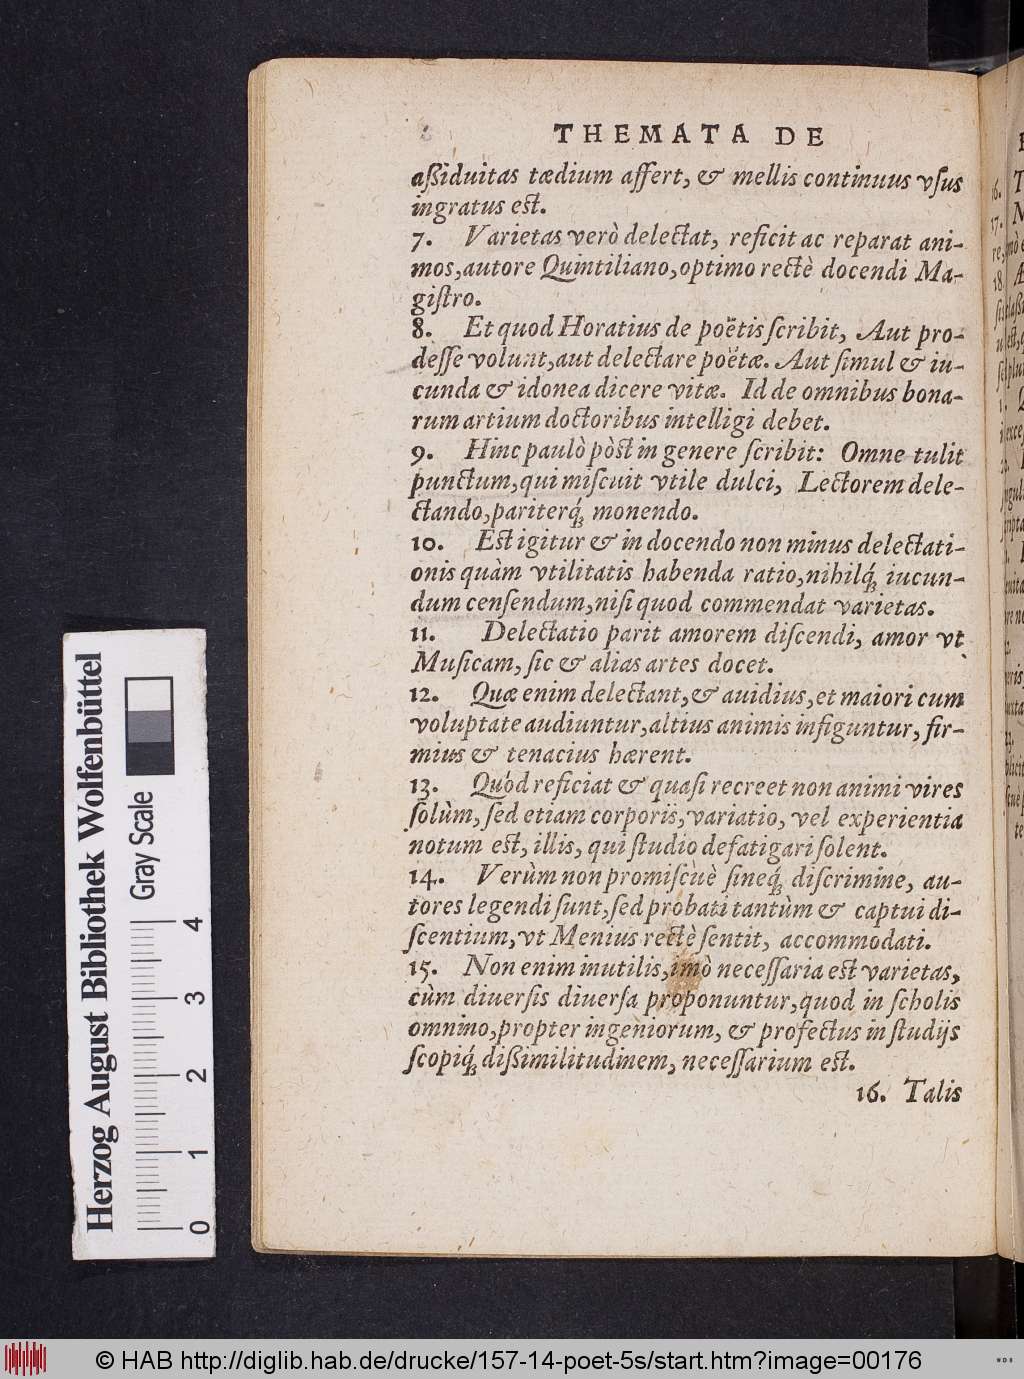 THEMATA DE
aßiduitas tædium affert, & mellis continuus vſus
ingratus est.
7. Varietas verò delectat, reficit ac reparat ani-
mos, autore Quintiliano, optimo rectè docendi Ma-
giſtro.
8. Et quod Horatius de poëtis ſcribit, Aut pro-
deſſe volunt, aut delectare poëtæ. Aut ſimul & iu-
cunda & idonea dicere vitæ. Id de omnibus bona-
rum artium doctoribus intelligi debet.
9. Hinc paulò pòst in genere ſcribit: Omne tulit
punctum, qui miſcuit vtile dulci, Lectorem dele-
ctando, pariterq́; monendo.
10. Est igitur & in docendo non minus delectati-
onis quàm vtilitatis habenda ratio, nihilq́; iucun-
dum cenſendum, niſi quod commendat varietas.
11. Delectatio parit amorem diſcendi, amor vt
Muſicam, ſic & alias artes docet.
12. Quæ enim delectant, & auidius, et maiori cum
voluptate audiuntur, altius animis infiguntur, fir-
mius & tenacius hærent.
13. Quód reficiat & quaſi recreet non animi vires
ſolùm, ſed etiam corporis, variatio, vel experientia
notum est, illis, qui ſtudio defatigari ſolent.
14. Verùm non promiſcuè ſineq́; diſcrimine, au-
tores legendi ſunt, ſed probati tantùm & captui di-
ſcentium, vt Menius rectè ſentit, accommodati.
15. Non enim inutilis, imò neceſſaria est varietas,
cùm diuerſis diuerſa proponuntur, quod in ſcholis
omnino, propter ingeniorum, & profectus in ſtudijs
ſcopiq́; dißimilitudinem, neceſſarium est.
16. Talis
Herzog August Bibliothek Wolfenbüttel
Gray Scale
0 1 2 3 4
© HAB http://diglib.hab.de/drucke/157-14-poet-5s/start.htm?image=00176